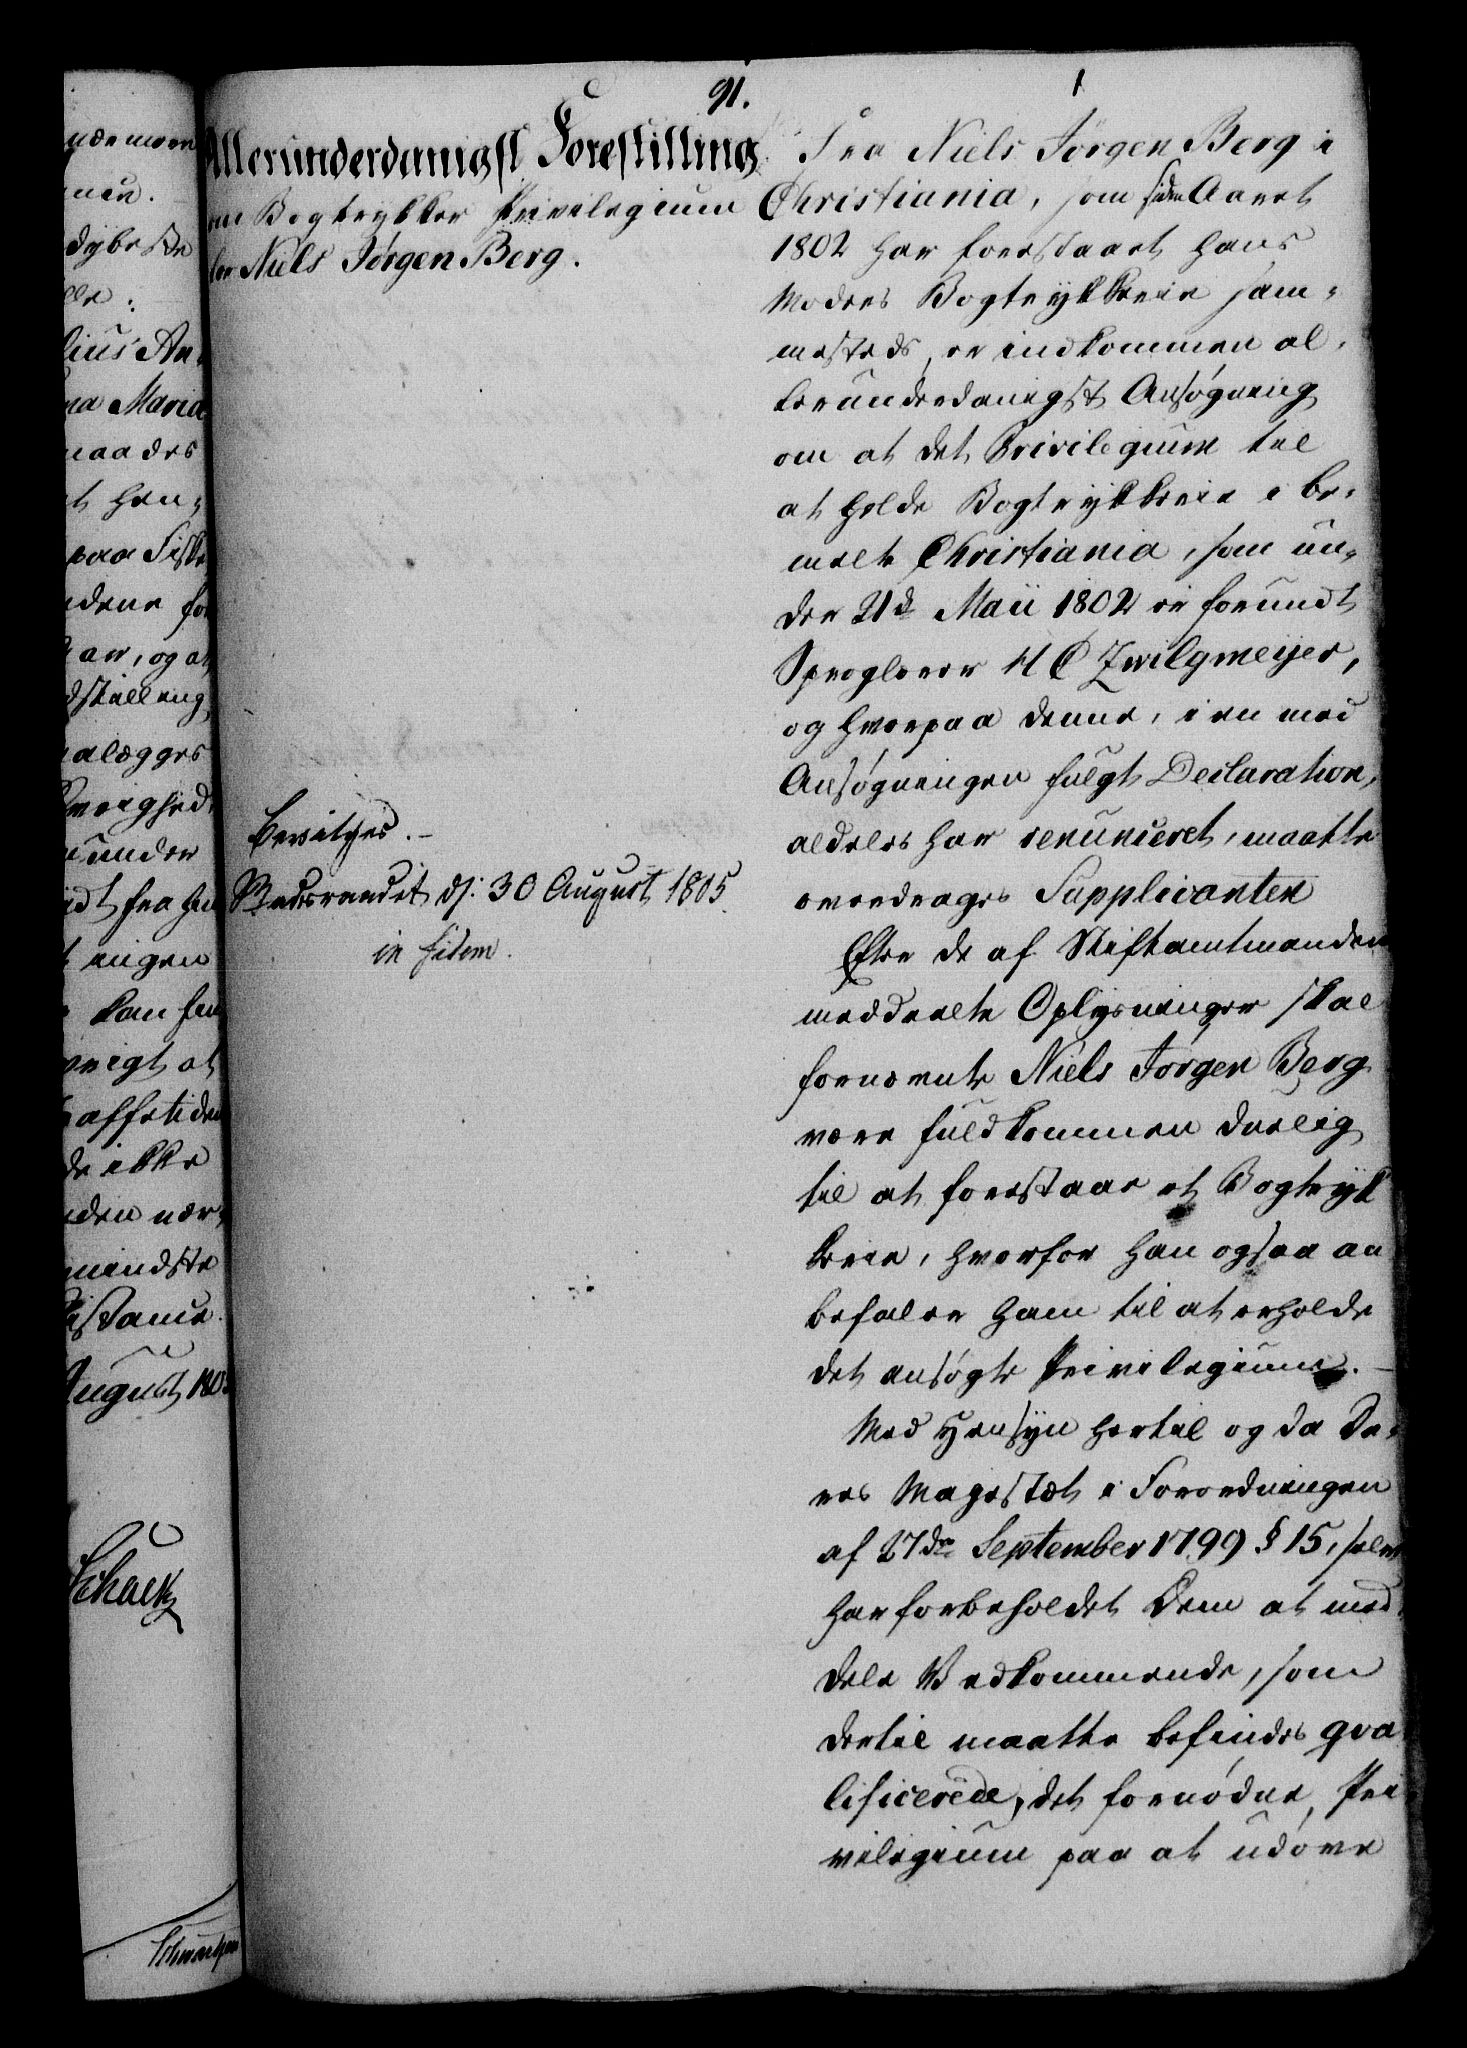 91.
Allerunderdanigst Forestilling
om Bogtrykker Privilegium
for Niels Jørgen Berg.
Bevilges.
Frederiksberg d: 30 August 1805
in fidem.
Fra Niels Jørgen Berg i
Christiania, som siden Aaret
1802 har forestaaet hans
Moders Bogtrykkerie sam-
mesteds, er indkommen al-
lerunderdanigst Ansøgning
om at det Privilegium til
at holde Bogtrykkerie i be-
melte Christiania, som un-
der 21de Maii 1802 er forundt
Sproglærer H C Zwilgmeijer,
og hvorpaa denne, i en med
Ansøgningen fulgt Declaration,
aldeles har renunceret, maatte
overdrages Supplicanten
Efter de af Stiftamtmanden
meddeelte Oplysninger skal
fornævnte Niels Jørgen Berg
være fuldkommen duelig
til at forestaae et Bogtryk
kerie, hvorfor han ogsaa an
befaler ham til at erholde
det ansøgte Privilegium.
Med Hensyn hertil og da De-
res Majestæt i Forordningen
af 27de September 1799 § 15, selv
har forbeholdet Dem at med-
dele Vedkommende, som
dertil maatte befindes qva
lificerede, det fornødne Pri
vilegium paa at udøve
nden
dybeste
lius An-
na Maria
maades
et hen-
paa Fiske
dene for
og at
dstilling
nlægges
Øvrighed
under
idt fra
ingen
kan
vrigt at
de ikke
den nær-
mindste
Distance
August 180
Schack